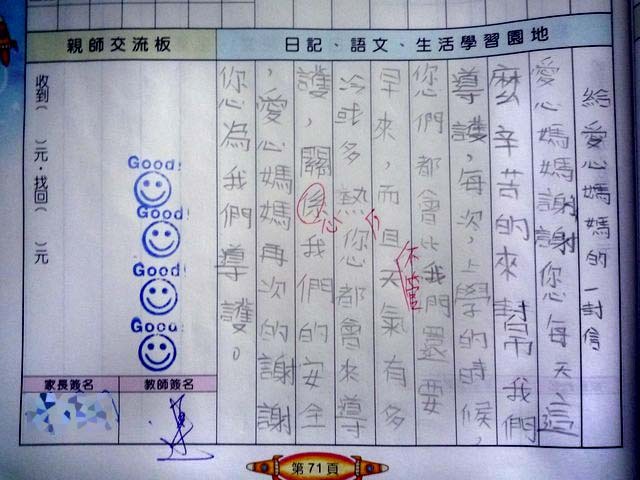 日記、語文、生活學習園地
給愛心媽媽的一封信
愛心媽媽謝謝您每天這
麼辛苦的來幫我們
導護，每次，上學的時候，
您們都會比我們還要
早來，而且天氣有多
不管
冷或多熱您都會來導
護，關係我們的安全
心
，愛心媽媽再次的謝謝
您為我們導護。
親師交流板
Good!
Good!
Good!
Good!
收到(　)元．找回(　)元
教師簽名
家長簽名
第71頁